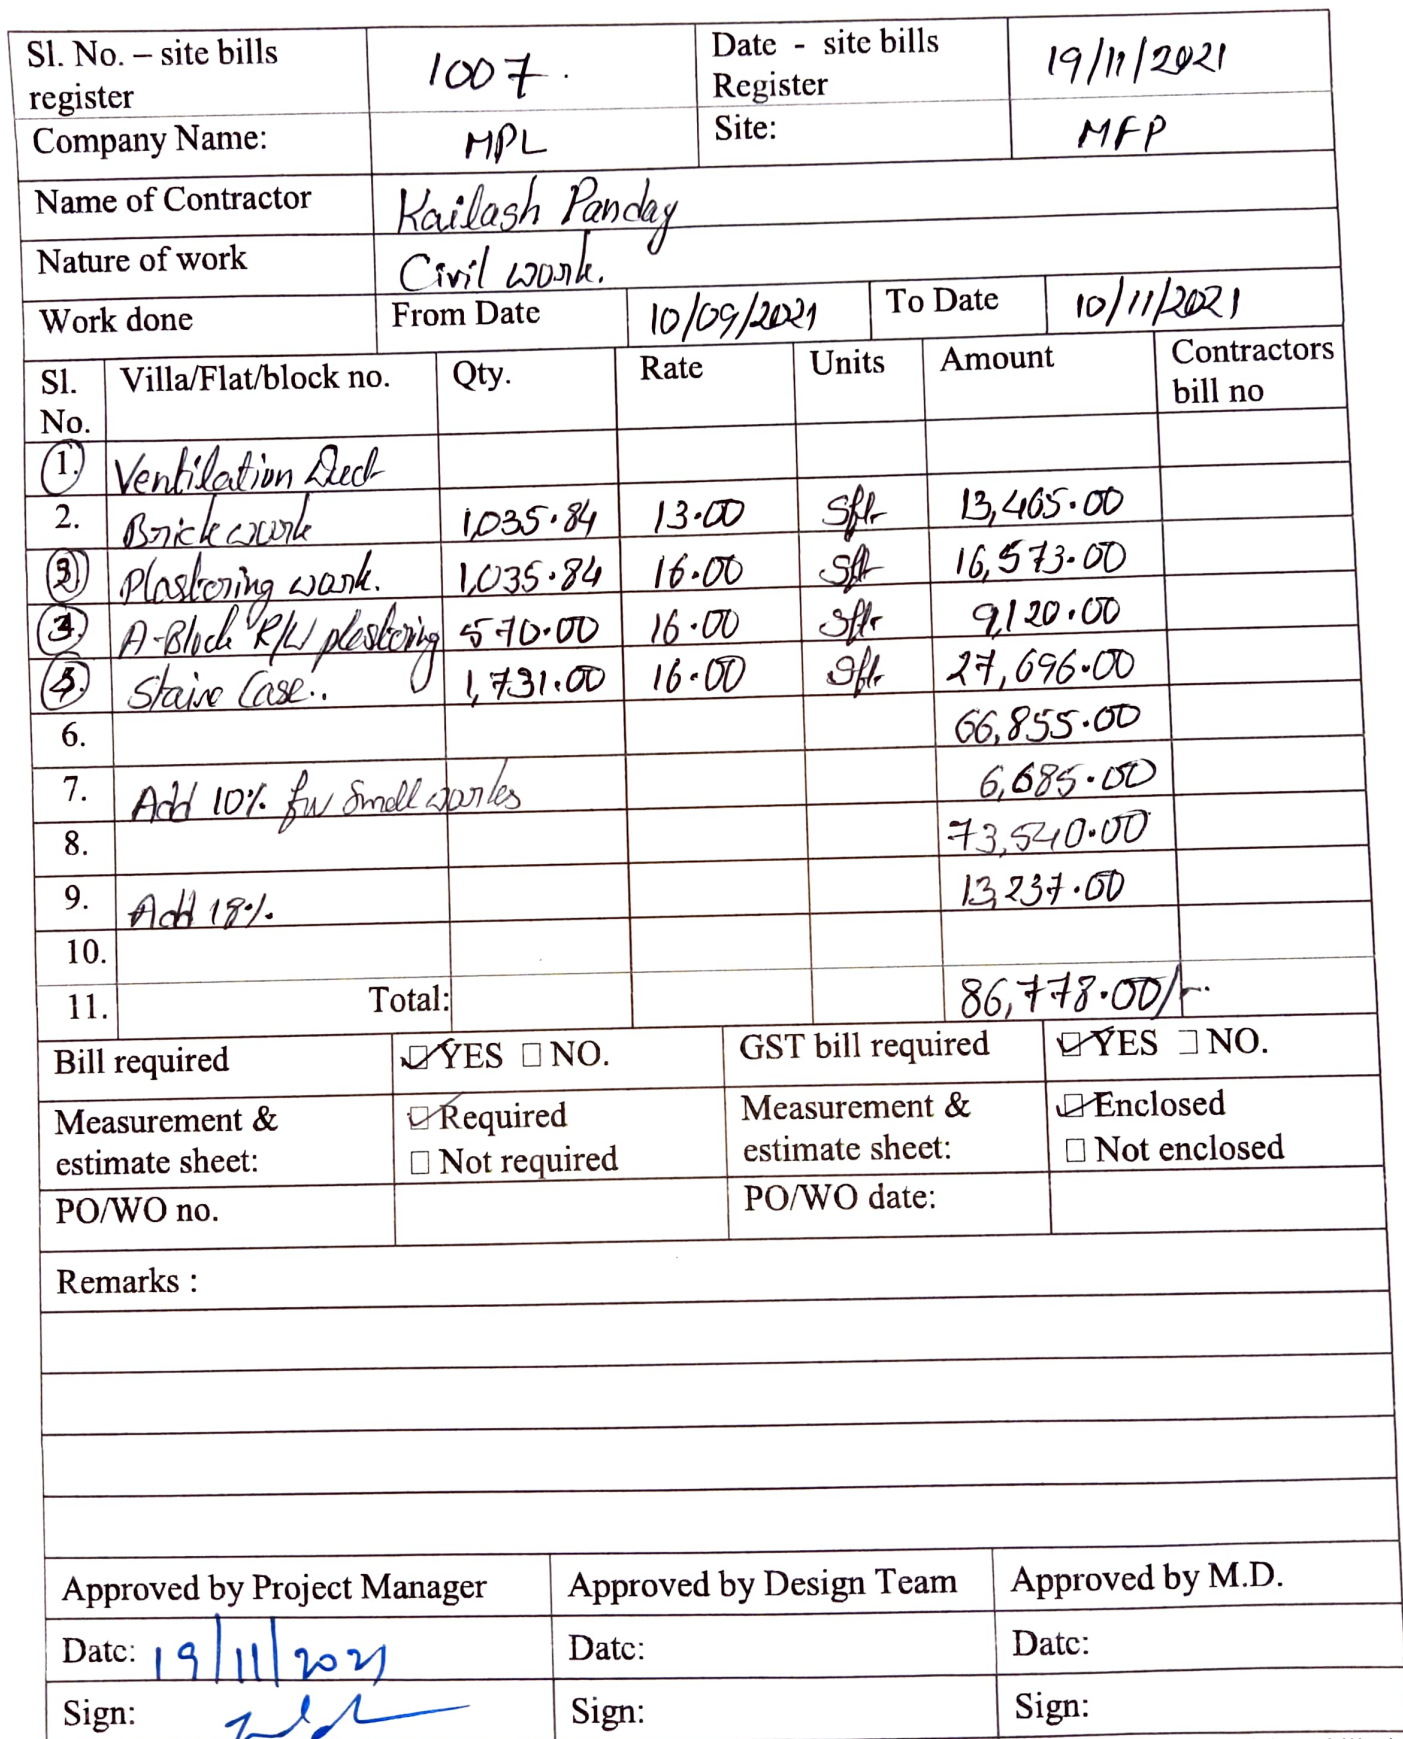 Sl. No. – site bills register 1007. Date - site bills Register 19/11/2021
Company Name: MPL Site: MFP
Name of Contractor Kailash Panday
Nature of work Civil work.
Work done From Date 10/09/2021 To Date 10/11/2021
Sl. No. Villa/Flat/block no. Qty. Rate Units Amount Contractors bill no
1. Ventilation Duct
2. Brick work 1,035.84 13.00 Sft. 13,465.00
3 Plastering work. 1,035.84 16.00 Sft 16,573.00
4. A-Block R/W plastering 570.00 16.00 Sft. 9,120.00
5. Staire Case.. 1,731.00 16.00 Sft. 27,696.00
6. 66,855.00
7. Add 10% for Small works 6,685.00
8. 73,540.00
9. Add 18%. 13,237.00
10.
11. Total: 86,778.00/-
Bill required YES NO. GST bill required YES NO.
Measurement & estimate sheet: Required Not required Measurement & estimate sheet: Enclosed Not enclosed
PO/WO no. PO/WO date:
Remarks :
Approved by Project Manager Approved by Design Team Approved by M.D.
Date: 19/11/2021 Date: Date:
Sign: Sign: Sign: